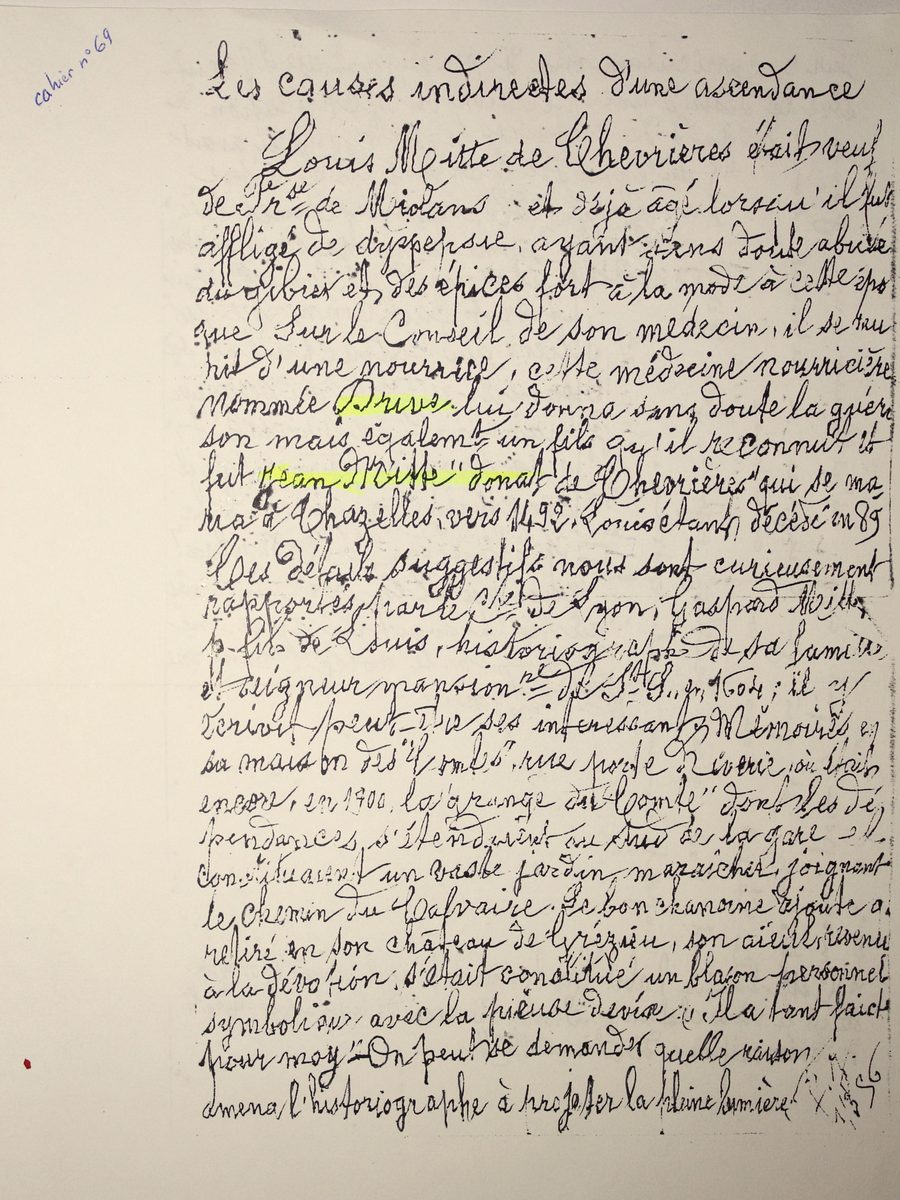 cahier n° 69
Les causes indirectes d'une ascendance
Louis Mitte de Chevrières était veuf
de de Miolans et déjà âgé lorsqu'il fut
affligé de dyspepsie, ayant sans doute abusé
du gibier et des épices fort à la mode à cette épo
que Sur le Conseil de son médecin, il se mu
nit d'une nourrice, cette médecine nourricière
nommée Brive lui donna sans doute la guéri
son mais égalemt un fils qu'il reconnut et
fut "Jean Mitte" donat de Chevrières" qui se ma-
ria à Chazelles, vers 1492, Louis étant décédé en 89
Ces détails suggestifs nous sont curieusement
rapportés par le Cte de Lyon, Gaspard Mitte,
p. fils de Louis, historiographe de sa famille
et seigneur mansionre de St S. en 1604; il y
écrivit peut-être ses intéressants Mémoires en
sa maison des "Comtes", rue porte Riverie, où était
encore, en 1900 la "grange du Comte" dont les dé
pendances, s'étendaient au sud de la gare et
constituaient un vaste jardin maraîcher, joignant
le chemin du Calvaire. Le bon chanoine ajoute q.
retiré en son château de Grézieu, son aïeul, revenu
à la dévotion s'était constitué un blason personnel
symbolique avec la pieuse devise "Il a tant faict
pour moy" - On peut se demander quelle raison
amena l'historiographe à projeter la pleine lumière